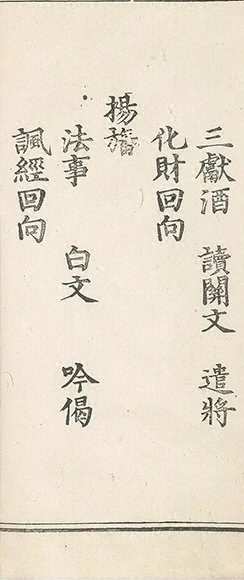 三獻酒　讀關文　遣將
化財回向
揚旛
法事　白文　吟偈
諷經回向